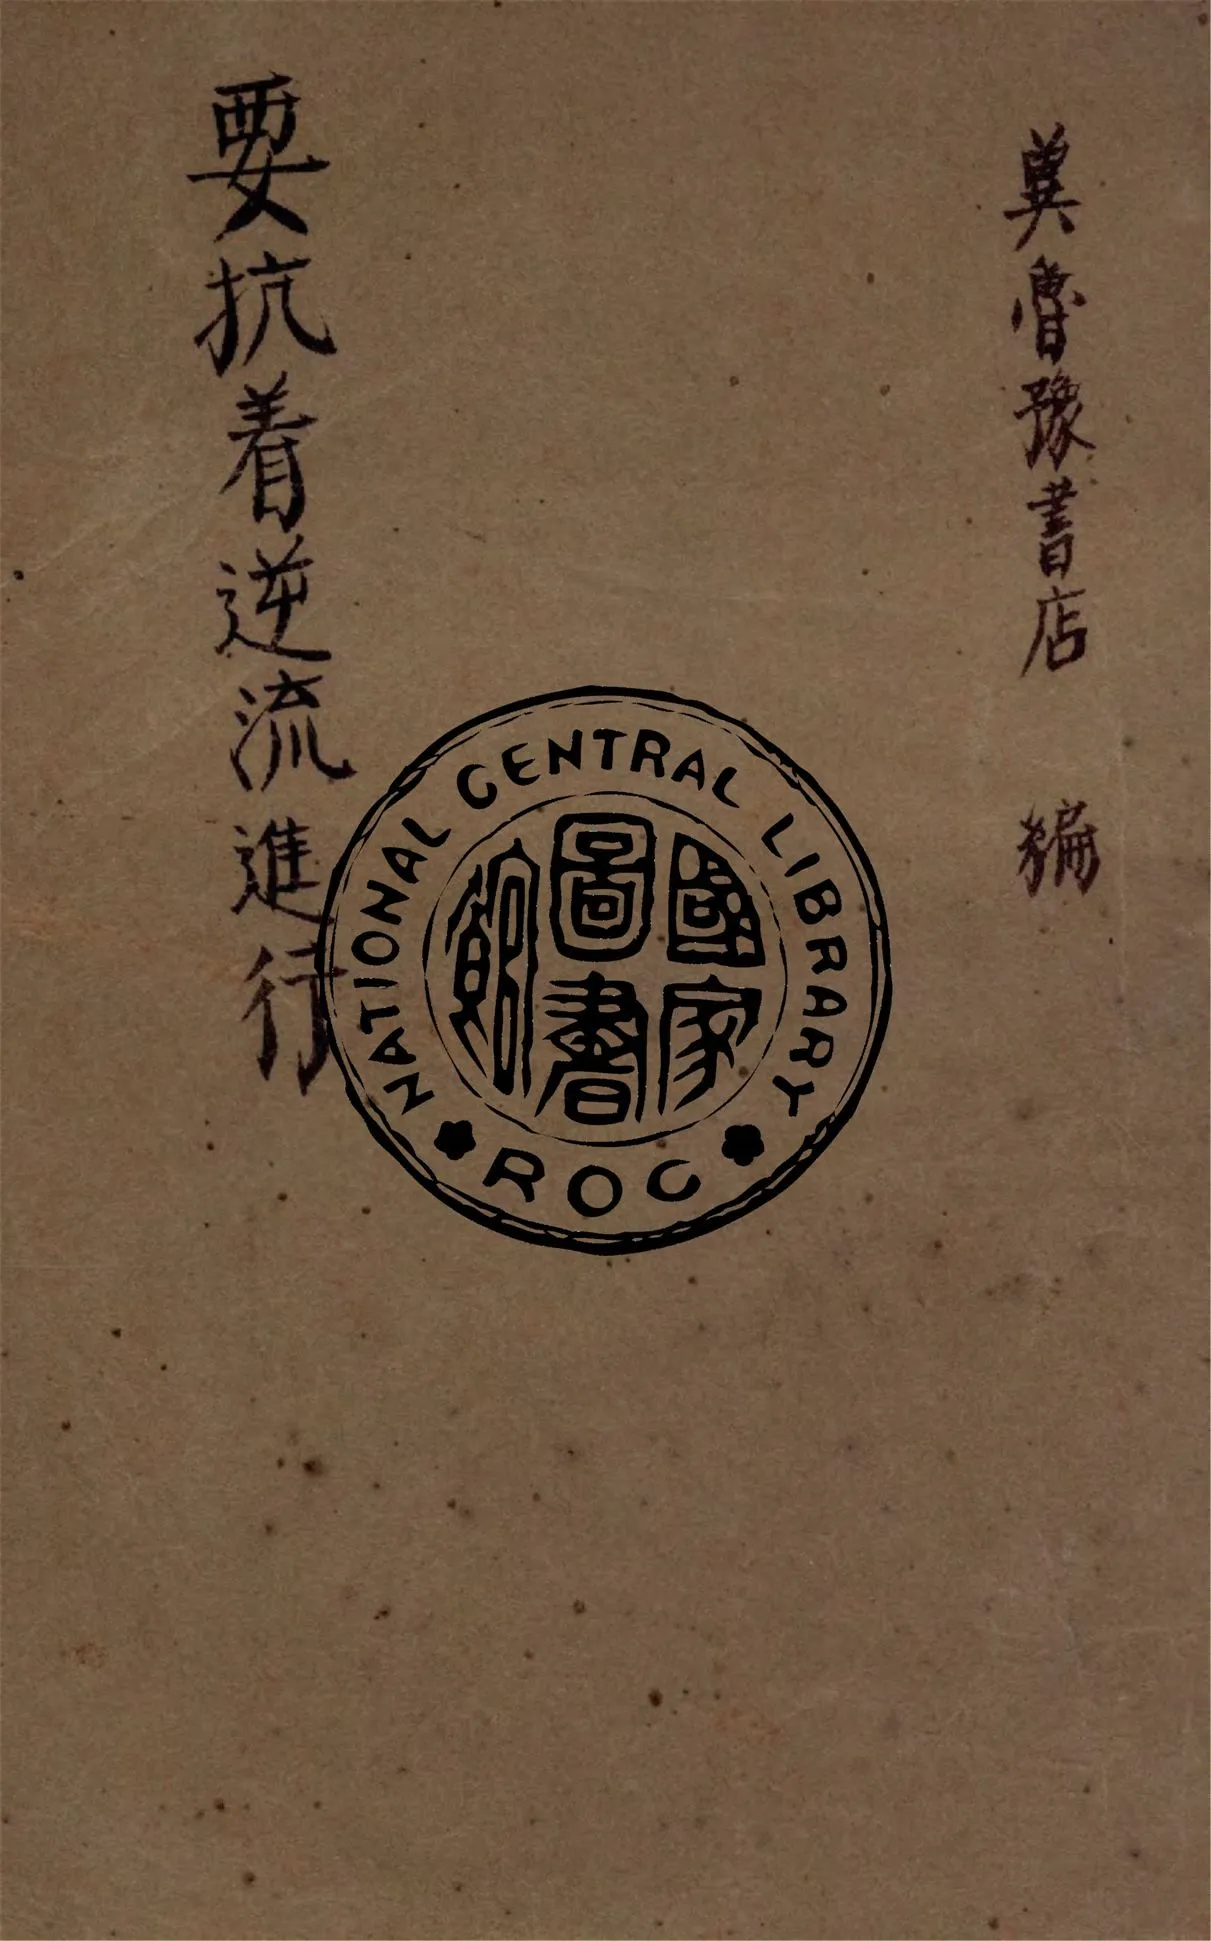 冀魯豫書店 編
要抗着逆流進行
NATIONAL CENTRAL LIBRARY
國家圖書館
ROC